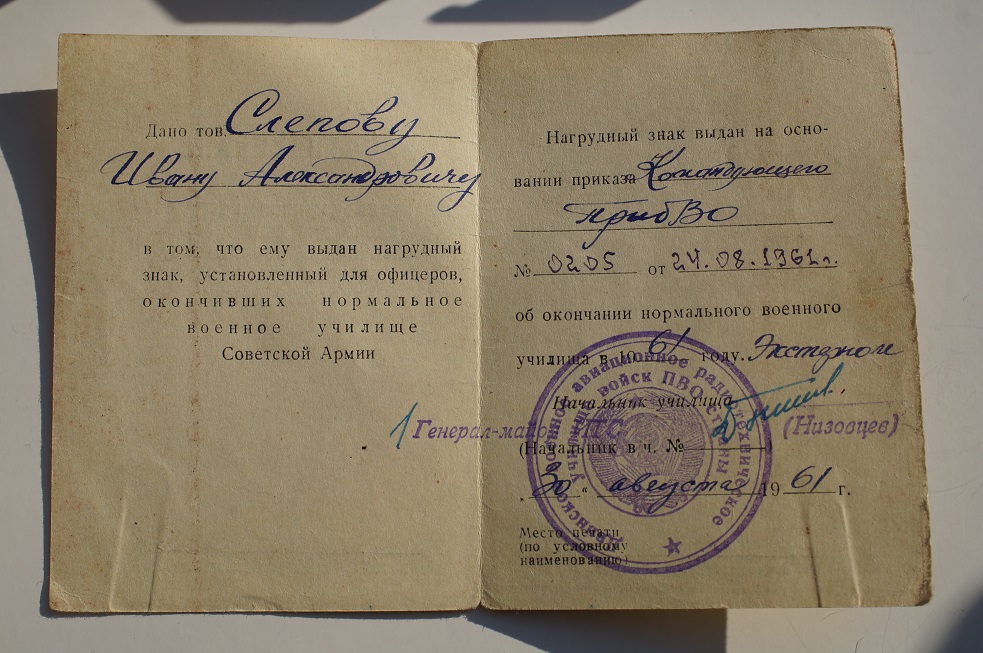 Дано тов. Слепову
Ивану Александровичу
в том, что ему выдан нагрудный
знак, установленный для офицеров,
окончивших нормальное
военное училище
Советской Армии
Нагрудный знак выдан на осно-
вании приказа Командующего
ПрибВО
№ 0205 от 24.08.1961г.
об окончании нормального военного
училища в 1961 году. Экстерном
Начальник училища
Генерал-майор ИТС (Низовцев)
(Начальник в ч. №
"30" августа 1961 г.
Место печати
(по условному
наименованию)
военное авиационное радиотехническое
училище войск ПВО страны